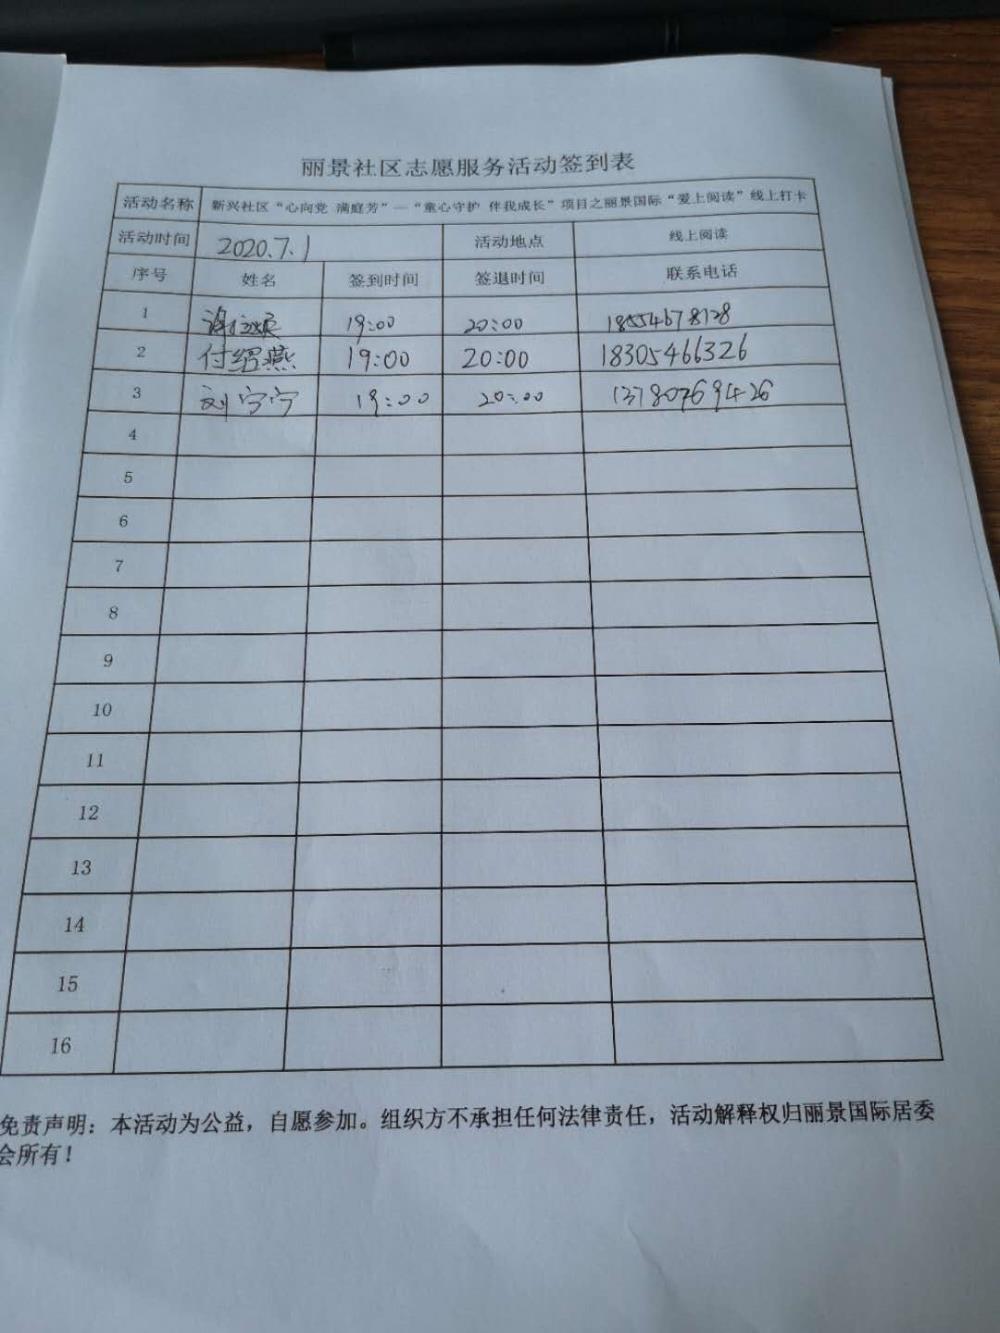 丽景社区志愿服务活动签到表
活动名称 新兴社区“心向党 满庭芳”—“童心守护 伴我成长”项目之丽景国际“爱上阅读”线上打卡
活动时间 2020.7.1 活动地点 线上阅读
序号 姓名 签到时间 签退时间 联系电话
1 19:00 20:00 18554678128
2 付绍燕 19:00 20:00 18305466326
3 刘宁宁 19:00 20:00 13780769426
4
5
6
7
8
9
10
11
12
13
14
15
16
免责声明：本活动为公益，自愿参加。组织方不承担任何法律责任，活动解释权归丽景国际居委
会所有！